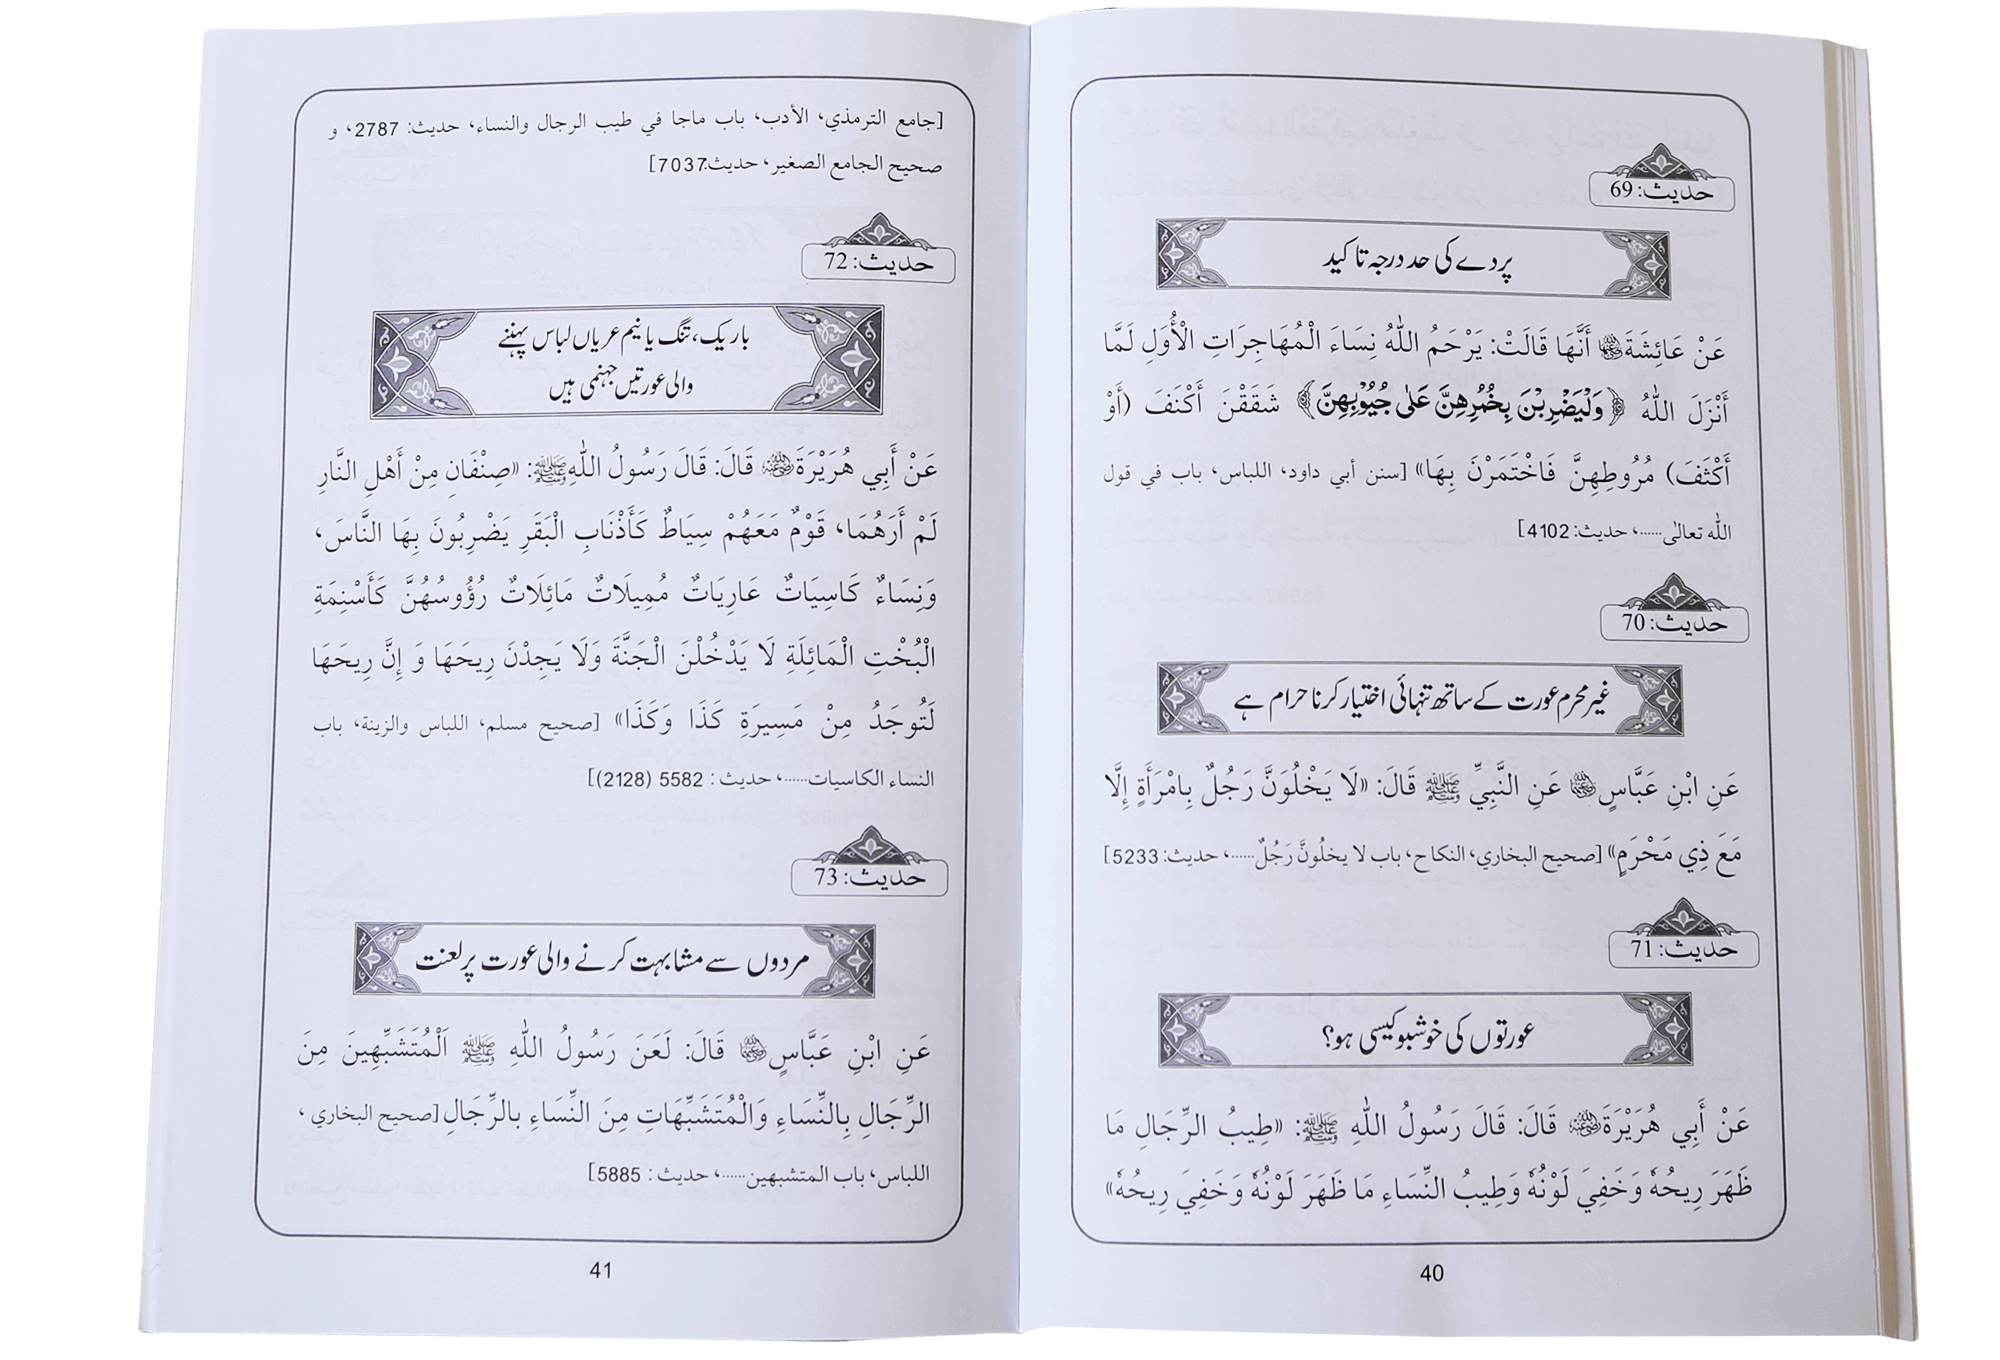 حدیث: 69
پردے کی حد درجہ تاکید
عَنْ عَائِشَةَ رضی اللہ عنہا أَنَّهَا قَالَتْ: يَرْحَمُ اللّٰهُ نِسَاءَ الْمُهَاجِرَاتِ الْأُوَلِ لَمَّا
أَنْزَلَ اللّٰهُ ﴿وَلْيَضْرِبْنَ بِخُمُرِهِنَّ عَلٰى جُيُوْبِهِنَّ﴾ شَقَقْنَ أَكْنَفَ (أَوْ
أَكْثَفَ) مُرُوطِهِنَّ فَاخْتَمَرْنَ بِهَا» [سنن أبي داود، اللباس، باب في قول
اللّٰه تعالى......، حديث: 4102]
حدیث: 70
غیر محرم عورت کے ساتھ تنہائی اختیار کرنا حرام ہے
عَنِ ابْنِ عَبَّاسٍ رضی اللہ عنہما عَنِ النَّبِيِّ ﷺ قَالَ: «لَا يَخْلُوَنَّ رَجُلٌ بِامْرَأَةٍ إِلَّا
مَعَ ذِي مَحْرَمٍ» [صحيح البخاري، النكاح، باب لا يخلُونَّ رَجُلٌ......، حديث: 5233]
حدیث: 71
عورتوں کی خوشبو کیسی ہو؟
عَنْ أَبِي هُرَيْرَةَ رضی اللہ عنہ قَالَ: قَالَ رَسُولُ اللّٰهِ ﷺ: «طِيبُ الرِّجَالِ مَا
ظَهَرَ رِيحُهُ وَخَفِيَ لَوْنُهُ وَطِيبُ النِّسَاءِ مَا ظَهَرَ لَوْنُهُ وَخَفِيَ رِيحُهُ»
40
[جامع الترمذي، الأدب، باب ماجا في طيب الرجال والنساء، حديث: 2787، و
صحيح الجامع الصغير، حديث:7037]
حدیث: 72
باریک، تنگ یا نیم عریاں لباس پہننے
والی عورتیں جہنمی ہیں
عَنْ أَبِي هُرَيْرَةَ رضی اللہ عنہ قَالَ: قَالَ رَسُولُ اللّٰهِ ﷺ: «صِنْفَانِ مِنْ أَهْلِ النَّارِ
لَمْ أَرَهُمَا، قَوْمٌ مَعَهُمْ سِيَاطٌ كَأَذْنَابِ الْبَقَرِ يَضْرِبُونَ بِهَا النَّاسَ،
وَنِسَاءٌ كَاسِيَاتٌ عَارِيَاتٌ مُمِيلَاتٌ مَائِلَاتٌ رُؤُوسُهُنَّ كَأَسْنِمَةِ
الْبُخْتِ الْمَائِلَةِ لَا يَدْخُلْنَ الْجَنَّةَ وَلَا يَجِدْنَ رِيحَهَا وَ إِنَّ رِيحَهَا
لَتُوجَدُ مِنْ مَسِيرَةِ كَذَا وَكَذَا» [صحيح مسلم، اللباس والزينة، باب
النساء الكاسيات......، حديث : 5582 (2128)]
حدیث: 73
مردوں سے مشابہت کرنے والی عورت پر لعنت
عَنِ ابْنِ عَبَّاسٍ رضی اللہ عنہما قَالَ: لَعَنَ رَسُولُ اللّٰهِ ﷺ اَلْمُتَشَبِّهِينَ مِنَ
الرِّجَالِ بِالنِّسَاءِ وَالْمُتَشَبِّهَاتِ مِنَ النِّسَاءِ بالرِّجَالِ [صحيح البخاري ،
اللباس، باب المتشبهين......، حديث : 5885]
41